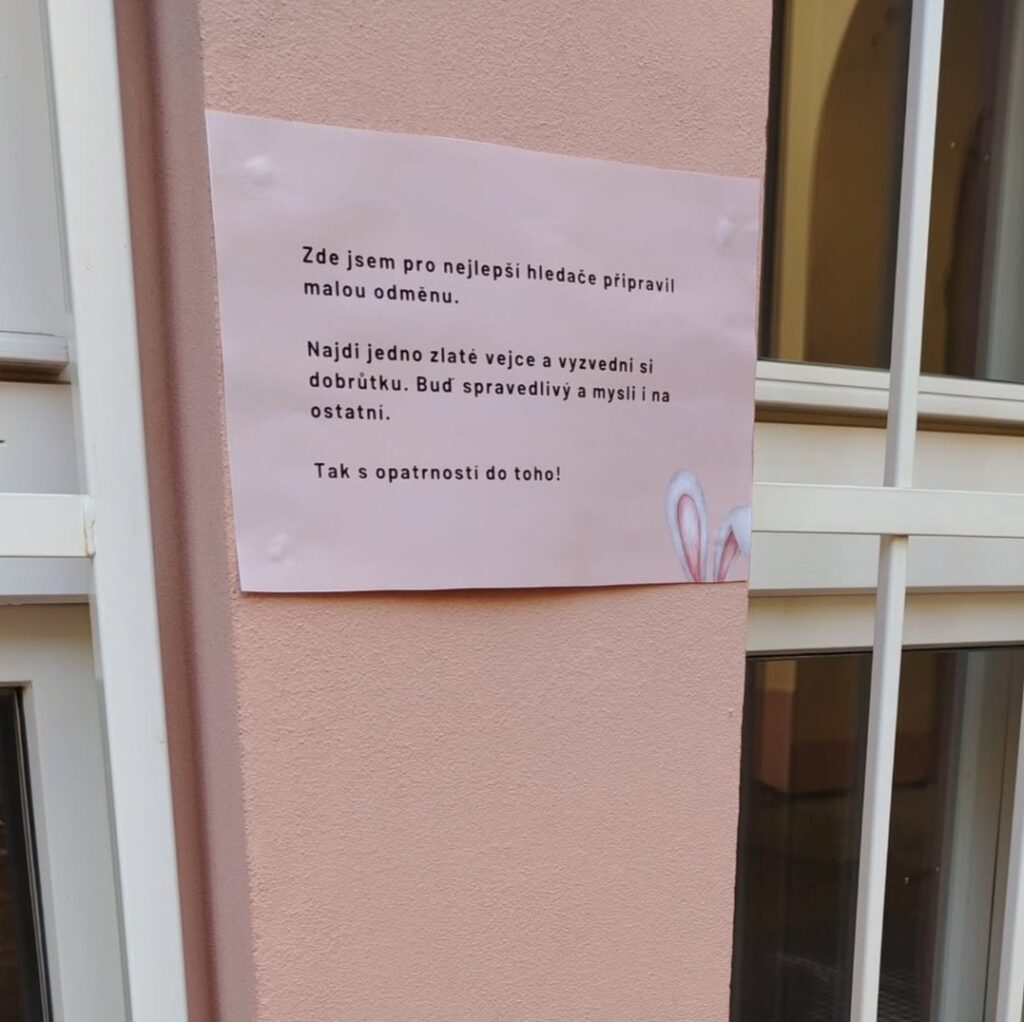 Zde jsem pro nejlepší hledače připravil
malou odměnu.
Najdi jedno zlaté vejce a vyzvedni si
dobrůtku. Buď spravedlivý a mysli i na
ostatní.
Tak s opatrností do toho!